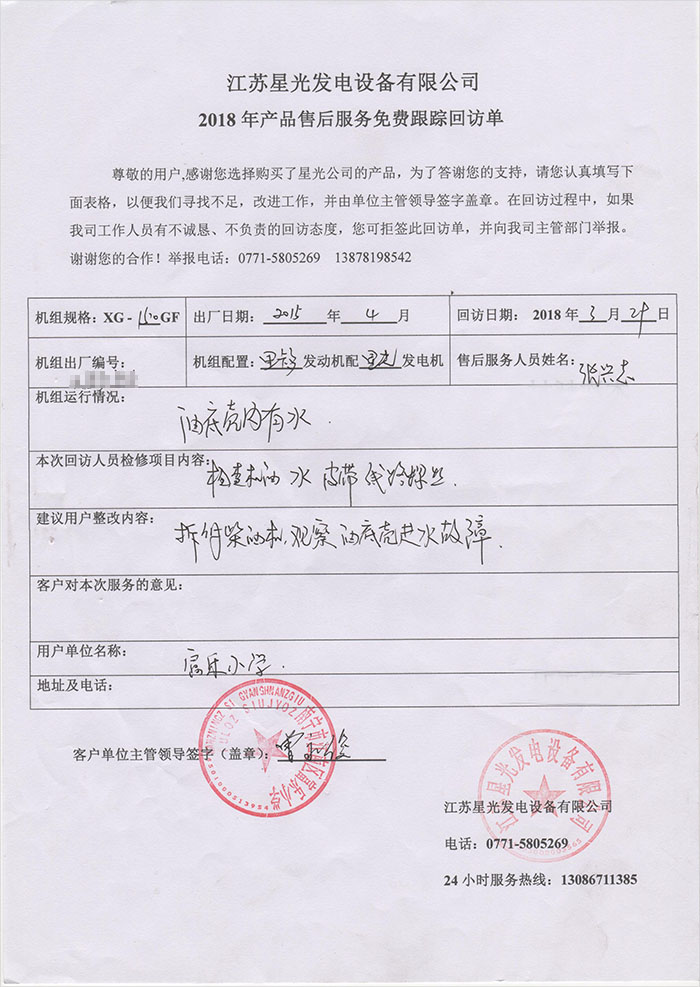 江苏星光发电设备有限公司
2018 年产品售后服务免费跟踪回访单
尊敬的用户,感谢您选择购买了星光公司的产品，为了答谢您的支持，请您认真填写下
面表格，以便我们寻找不足，改进工作，并由单位主管领导签字盖章。在回访过程中，如果
我司工作人员有不诚恳、不负责的回访态度，您可拒签此回访单，并向我司主管部门举报。
谢谢您的合作！举报电话：0771-5805269 13878198542
机组规格：XG - 150GF 出厂日期： 2015 年 4 月 回访日期： 2018 年 3 月 29 日
机组出厂编号： 机组配置： 发动机配 发电机 售后服务人员姓名： 张兴志
机组运行情况：
油底壳内有水.
本次回访人员检修项目内容：
检查机油 水 皮带 线络螺丝.
建议用户整改内容：
拆解柴油机,观察油底壳进水故障.
客户对本次服务的意见：
用户单位名称：
富乐小学.
地址及电话：
客户单位主管领导签字（盖章）： 曾
江苏星光发电设备有限公司
江苏星光发电设备有限公司
电话：0771-5805269
24 小时服务热线：13086711385